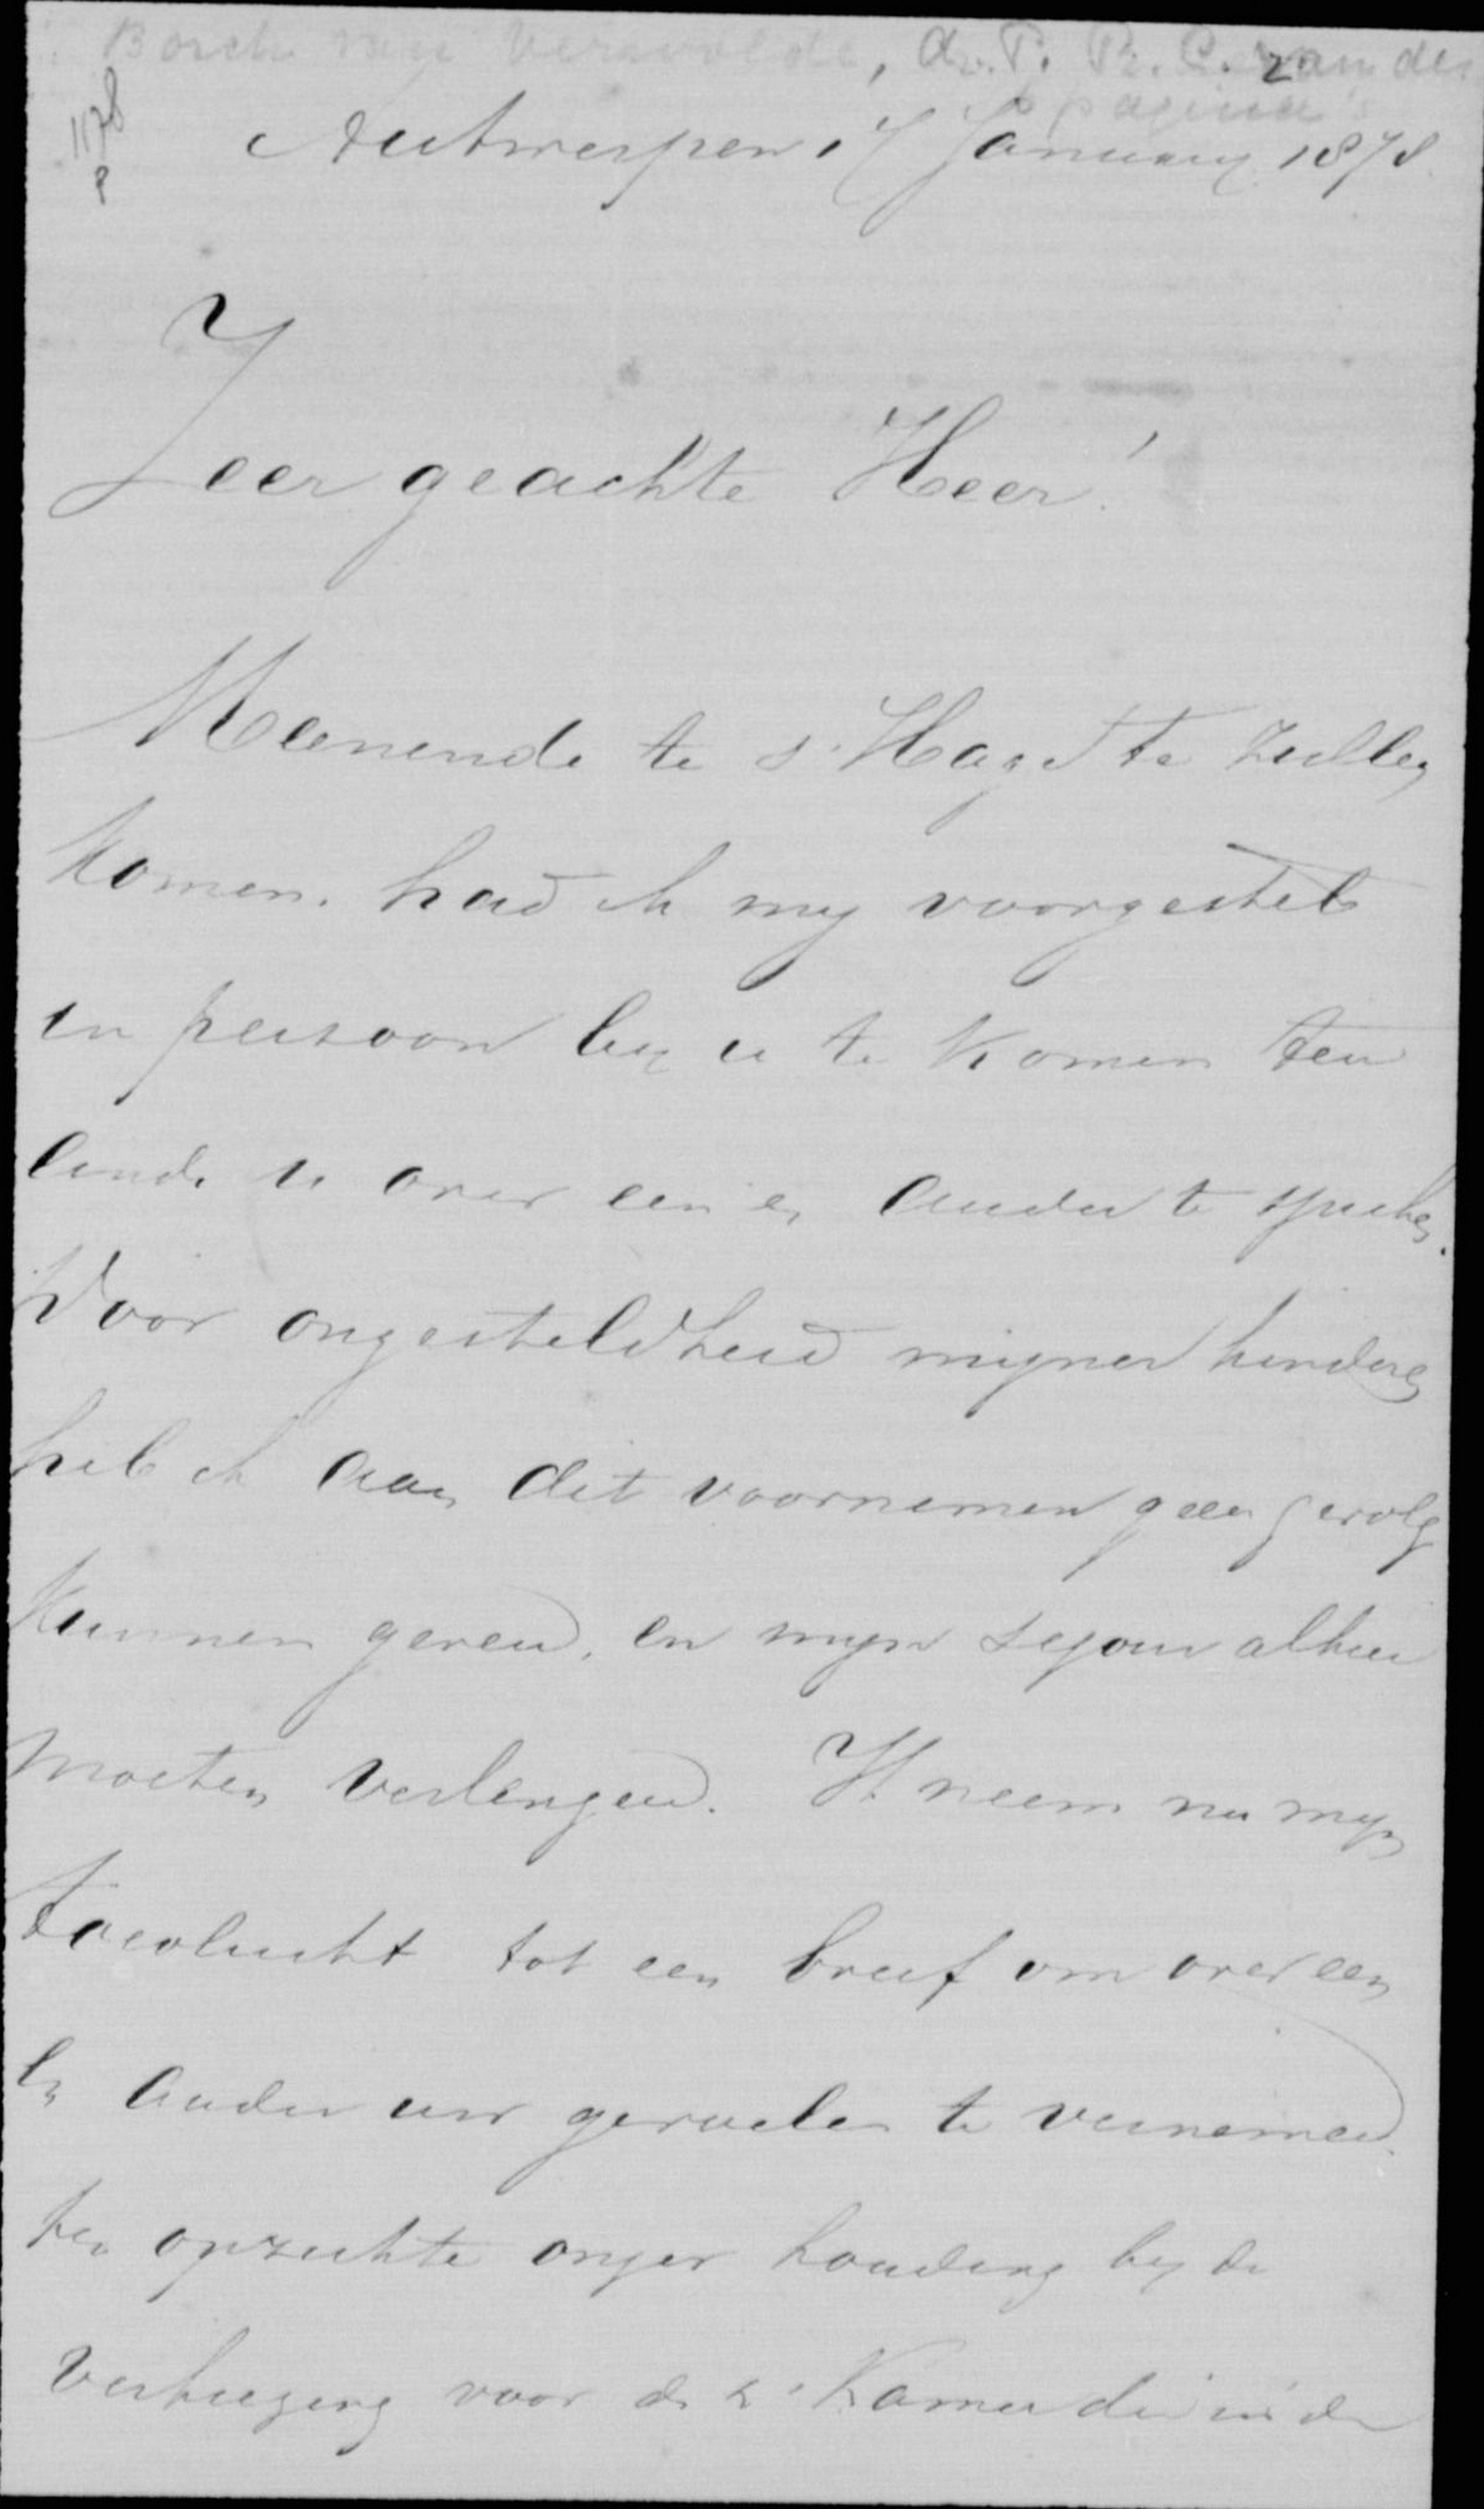 Bosch van Verwolde, Dr. P. R. C. van den
pagina's
1178
P
Antwerpen 17 January 1878.
Zeer geachte Heer!
Meenende te s'Hage te zullen
komen, had ik my voorgesteld
in persoon by u te komen ten
einde u over een en ander te spreken.
Door ongesteldheid myner kinderen
heb ik aan dit voornemen geen gevolg
kunnen geven, en myn sejour alhier
moeten verlengen. Ik neem nu myn
toevlucht tot een brief om over een
en ander uw gevoelen te vernemen
ten opzichte onzer houding by de
verkiezing voor de 2e Kamer die in de